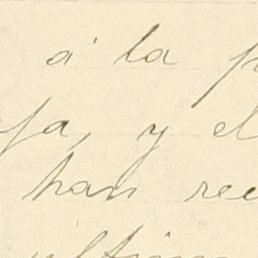 á la p
fa, y el
han ree
últim